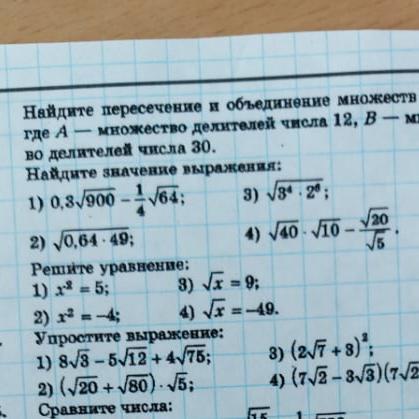 Найдите пересечение и объединение множеств
где A — множество делителей числа 12, B —
во делителей числа 30.
Найдите значение выражения:
1) 0,3√900 − 1/4 √64; 3) √(3⁴ · 2⁶);
2) √(0,64 · 49); 4) √40 · √10 − √20/√5.
Решите уравнение:
1) x² = 5; 3) √x = 9;
2) x² = −4; 4) √x = −49.
Упростите выражение:
1) 8√3 − 5√12 + 4√75; 3) (2√7 + 3)²;
2) (√20 + √80) · √5; 4) (7√2 − 3√3)(7√2
Сравните числа: